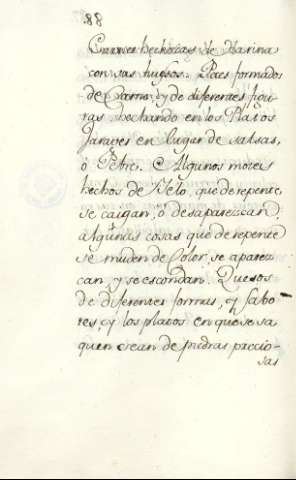 88
Carnes hechizas de Harina
con sus huesos. Pzes formados
de Carne, y de diferentes figu
ras hechando en los Platos
Jaraves en Lugar de salsas,
ò Petre. Algunos
hechos de Yelo, que de repente,
se caigan, ò desaparezcan,
algunas cosas que de repente
se muden de Color, se aparez
can, y se escondan. Quesos
de diferentes formas, y sabo
res, y los platos en que se sa
quen sean de piedras preccio-
sas